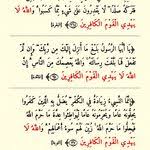 فَتَرَكَهُ صَلْدًا ۖ لَّا يَقْدِرُونَ عَلَىٰ شَيْءٍ مِّمَّا كَسَبُوا ۗ وَاللَّهُ لَا
يَهْدِي الْقَوْمَ الْكَافِرِينَ
يَا أَيُّهَا الرَّسُولُ بَلِّغْ مَا أُنزِلَ إِلَيْكَ مِن رَّبِّكَ ۖ وَإِن لَّمْ
تَفْعَلْ فَمَا بَلَّغْتَ رِسَالَتَهُ ۚ وَاللَّهُ يَعْصِمُكَ مِنَ النَّاسِ ۗ إِنَّ
اللَّهَ لَا يَهْدِي الْقَوْمَ الْكَافِرِينَ
إِنَّمَا النَّسِيءُ زِيَادَةٌ فِي الْكُفْرِ ۖ يُضَلُّ بِهِ الَّذِينَ كَفَرُوا
يُحِلُّونَهُ عَامًا وَيُحَرِّمُونَهُ عَامًا لِّيُوَاطِئُوا عِدَّةَ مَا حَرَّمَ اللَّهُ
فَيُحِلُّوا مَا حَرَّمَ اللَّهُ ۚ زُيِّنَ لَهُمْ سُوءُ أَعْمَالِهِمْ ۗ وَاللَّهُ لَا
يَهْدِي الْقَوْمَ الْكَافِرِينَ